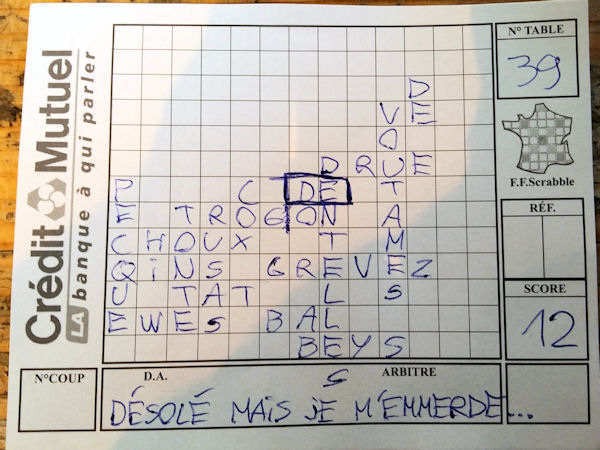 Crédit Mutuel
LA banque à qui parler
N° TABLE
39
F.F.Scrabble
RÉF.
SCORE
12
D
V E
O
D R U E
P C D E T
E T R O G O N A
C H O U X T M
Q i N S G R E V E Z
U T A T L S
E W E S B A L
B E Y S
S
N°COUP
D.A.
ARBITRE
DÉSOLÉ MAiS JE M'EMMERDE...